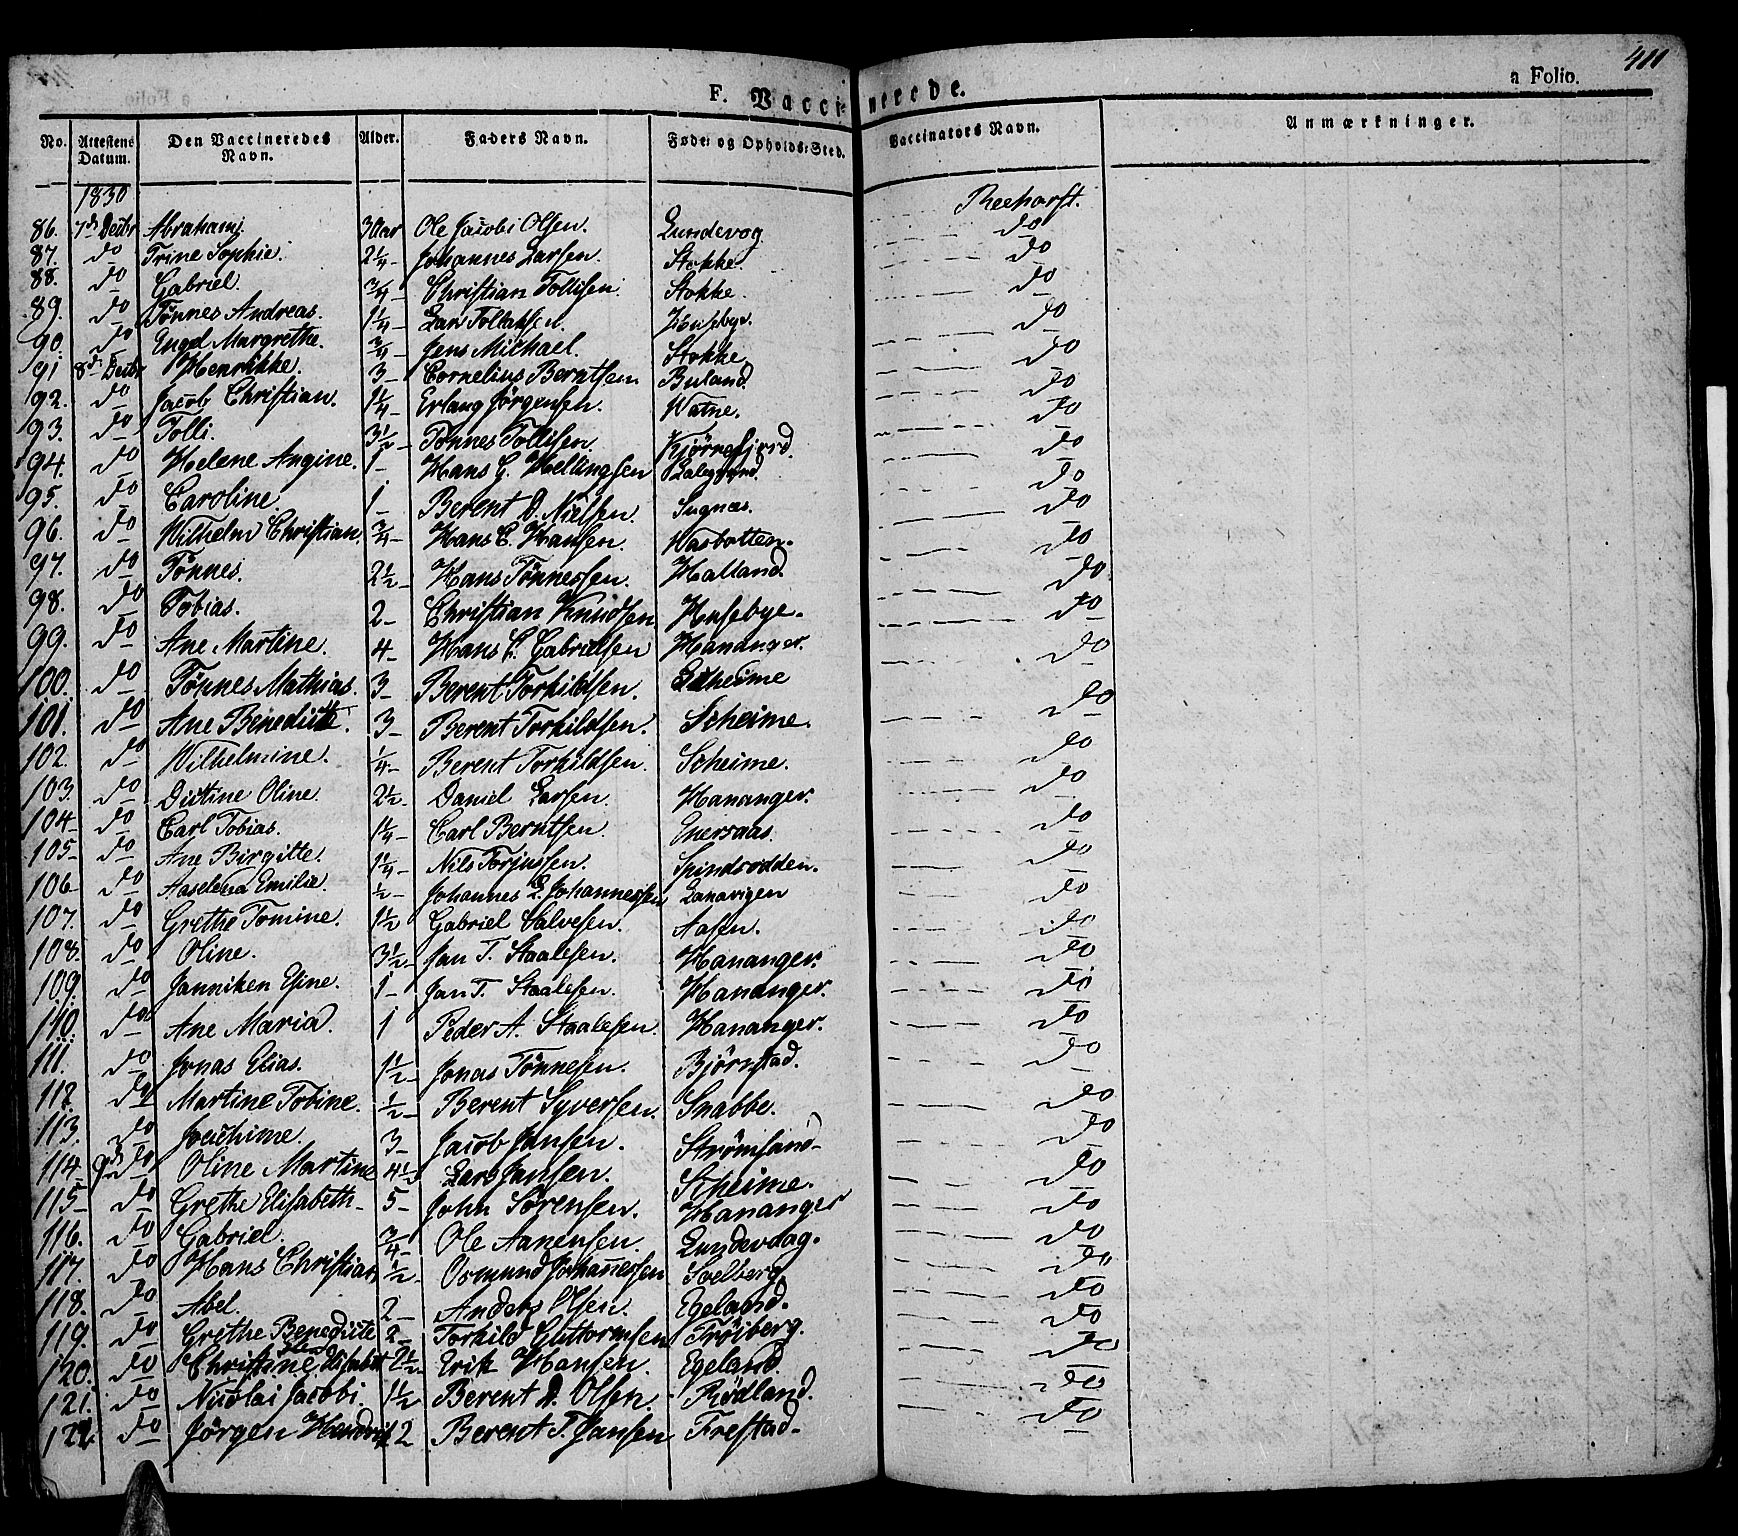 411
F. Vaccinerede. a Folio.
No. Attestens Datum. Den Vaccineredes Navn. Alder. Faders Navn. Føde- og Opholds-Sted. Vaccinators Navn. Anmærkninger.
1830
86. 7de Decbr Abraham. 3 Aar Ole Jacobi Olsen. Lundevog. Reehorst.
87. do Trine Sophie. 2 1/4 - Johannes Larsen. Stokke. do
88. do Gabriel. 3/4 - Christian Tollisen. Stokke. do
89. do Tønnes Andreas. 1 1/4 - Lars Tollaksen. Husebye. do
90. do Engel Margrethe. 3/4 - Jens Michael. Stokke. do
91 8de Decbr Henrikke. 3 - Cornelius Berntsen Buland. do
92. do Jacob Christian. 1 1/4 - Erlang Jørgensen. Watne. do
93. do Tolli. 3 1/2 - Tønnes Tollisen. Kjørrefjord. do
94. do Helene Angine. 1 - Hans G. Hellingsen do
95. do Caroline. 1 - Berent D. Nielsen. Sugnæs. do
96. do Wilhelm Christian. 3/4 - Hans C. Hansen. Wasbotten. do
97. do Tønnes. 2 1/2 - Hans Tønnessen. Halland. do
98. do Tobias. 2 - Christian Knudsen Husebye. do
99. do Ane Martine. 4 - Hans C. Gabrielsen Hananger. do
100. do Tønnes Mathias. 3 - Berent Torkildsen. Scheime do
101. do Ane Benedicte. 3 - Berent Torkildsen. Scheime. do
102. do Wilhelmine. 1/4 - Berent Torkildsen. Scheime. do
103. do Dictine Oline. 2 1/2 - Daniel Larsen. Hananger. do
104 - do Carl Tobias. 1 1/4 - Carl Berntsen. Enersaas. do
105 - do Ane Birgitte. 1 1/4 - Nils Torjussen. Spindsodden. do
106 - do Aaselena Emilie. 1/2 - Johannes L. Johannessen Lanavigen do
107. do Grethe Tomine. 1 1/2 Gabriel Salvesen. Aasen. do
108. do Oline. 3 1/2 - Jan T. Staalesen. Hananger. do
109. do Janniken Esine. 1 - Jan T. Staalesen. Hananger. do
110. do Ane Maria. 1 Peder A. Staalesen. Hananger. do
111. do Jonas Elias. 1 1/2 - Jonas Tønnesen. Bjørnstad. do
112 do Martine Tobine. 1/2 - Berent Syversen. Snabbe. do
113. do Jochime. 3 - Jacob Jansen. Strømsland - do
114 9de do Oline Martine 4 1/2 Lars Jansen. Scheime. do
115 - do Grethe Elisabeth - 5 - John Sørensen. Hananger do
116. do Gabriel. 3/4 - Ole Aanensen. Lundevaag. do
117. do Hans Christian 1/2 - Osmund Johannessen Soelberg do
118. do Abel. 2 - Anders Olsen. Egeland. do
119. do Grethe Benedicte 2 - Torkild Guttormsen Trøiberg. do
120. do Christine Elisabet 2 1/2 - Erik Hansen. Egeland do
121. do Nicolai Jacobi. 1 1/2 - Berent A. Olsen. Rødland. do
122. do Jørgen 2 Berent T. Jansen Frestad - do